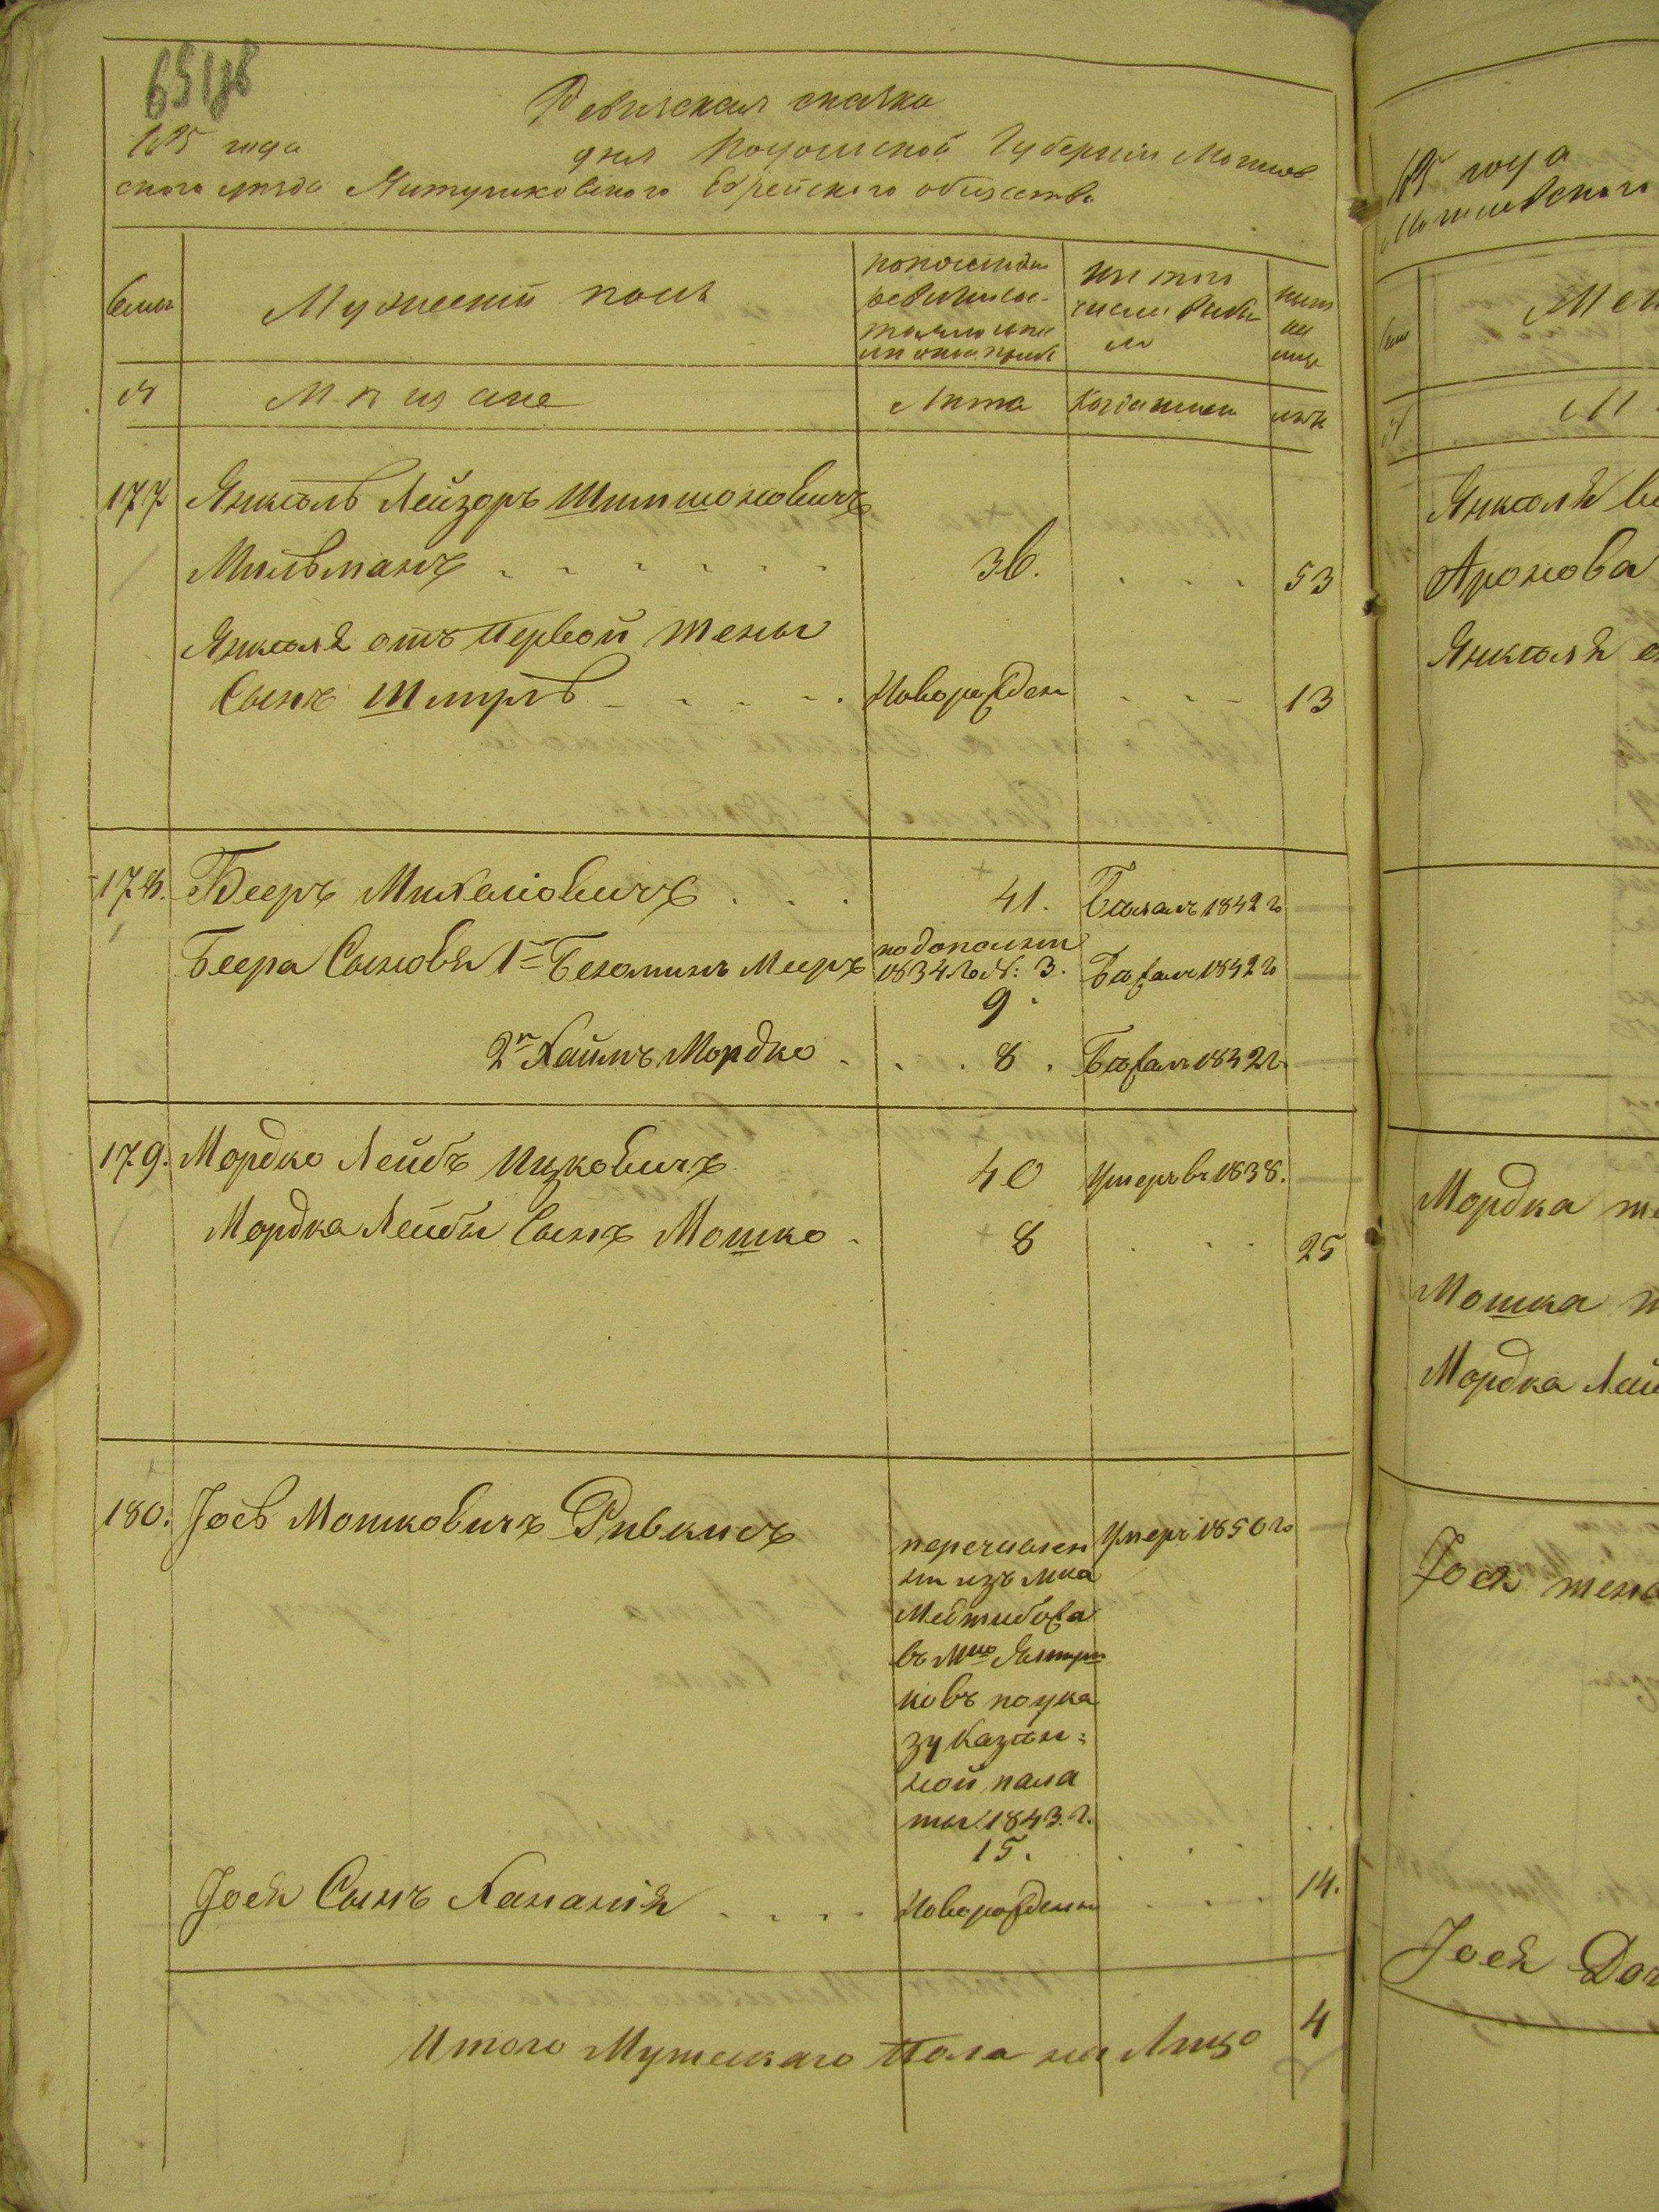 Ревизская сказка
185 года
дня Подольской Губернiи Могилев
ского уезда Ялтушковского Еврейского общества
Семьи
Мужеский полъ
по последн
ревизiи сос
тояло и по
Изъ того
числа выбы
ло
ныне
на
лицо
№
Мещане
Лета
Когда именно
летъ
177 Янкель Лейзоръ Шимшоновичъ
Мильманъ 36. 53
Янкеля отъ первой жены
Сынъ Шмуль Новорожден 13
178. Бееръ Михелiовичъ 41. Бежалъ 1842 го
Беера Сыновья 1й Бенiоминъ Мееръ
по дополнит
1834 го №: 3.
9.
Бежалъ 1842 го
2й Хаимъ Мордко 8. Бежалъ 1842 г.
179. Мордко Лейбъ Ицковичъ 40 Умеръ въ 1838.
Мордка Лейбы Сынъ Мошко 8 25
180. Iось Мошковичъ Ривкисъ
перечислен
ны изъ мка
Меджибожа
въ Мко Ялтуш
ковъ по ука
зу Казен:
ной пала
ты 1843. г.
15.
Умеръ 1850 го
Iося Сынъ Хананiя Новорожденн 14.
Итого Мужескаго Пола на Лицо 4
185 года
Могилевского
Семьи
Жен
№
М
Янкеля
Аронова
Янкеля
Мордка
Мошка
Мордка Лей
Iося жена
Iося Доч